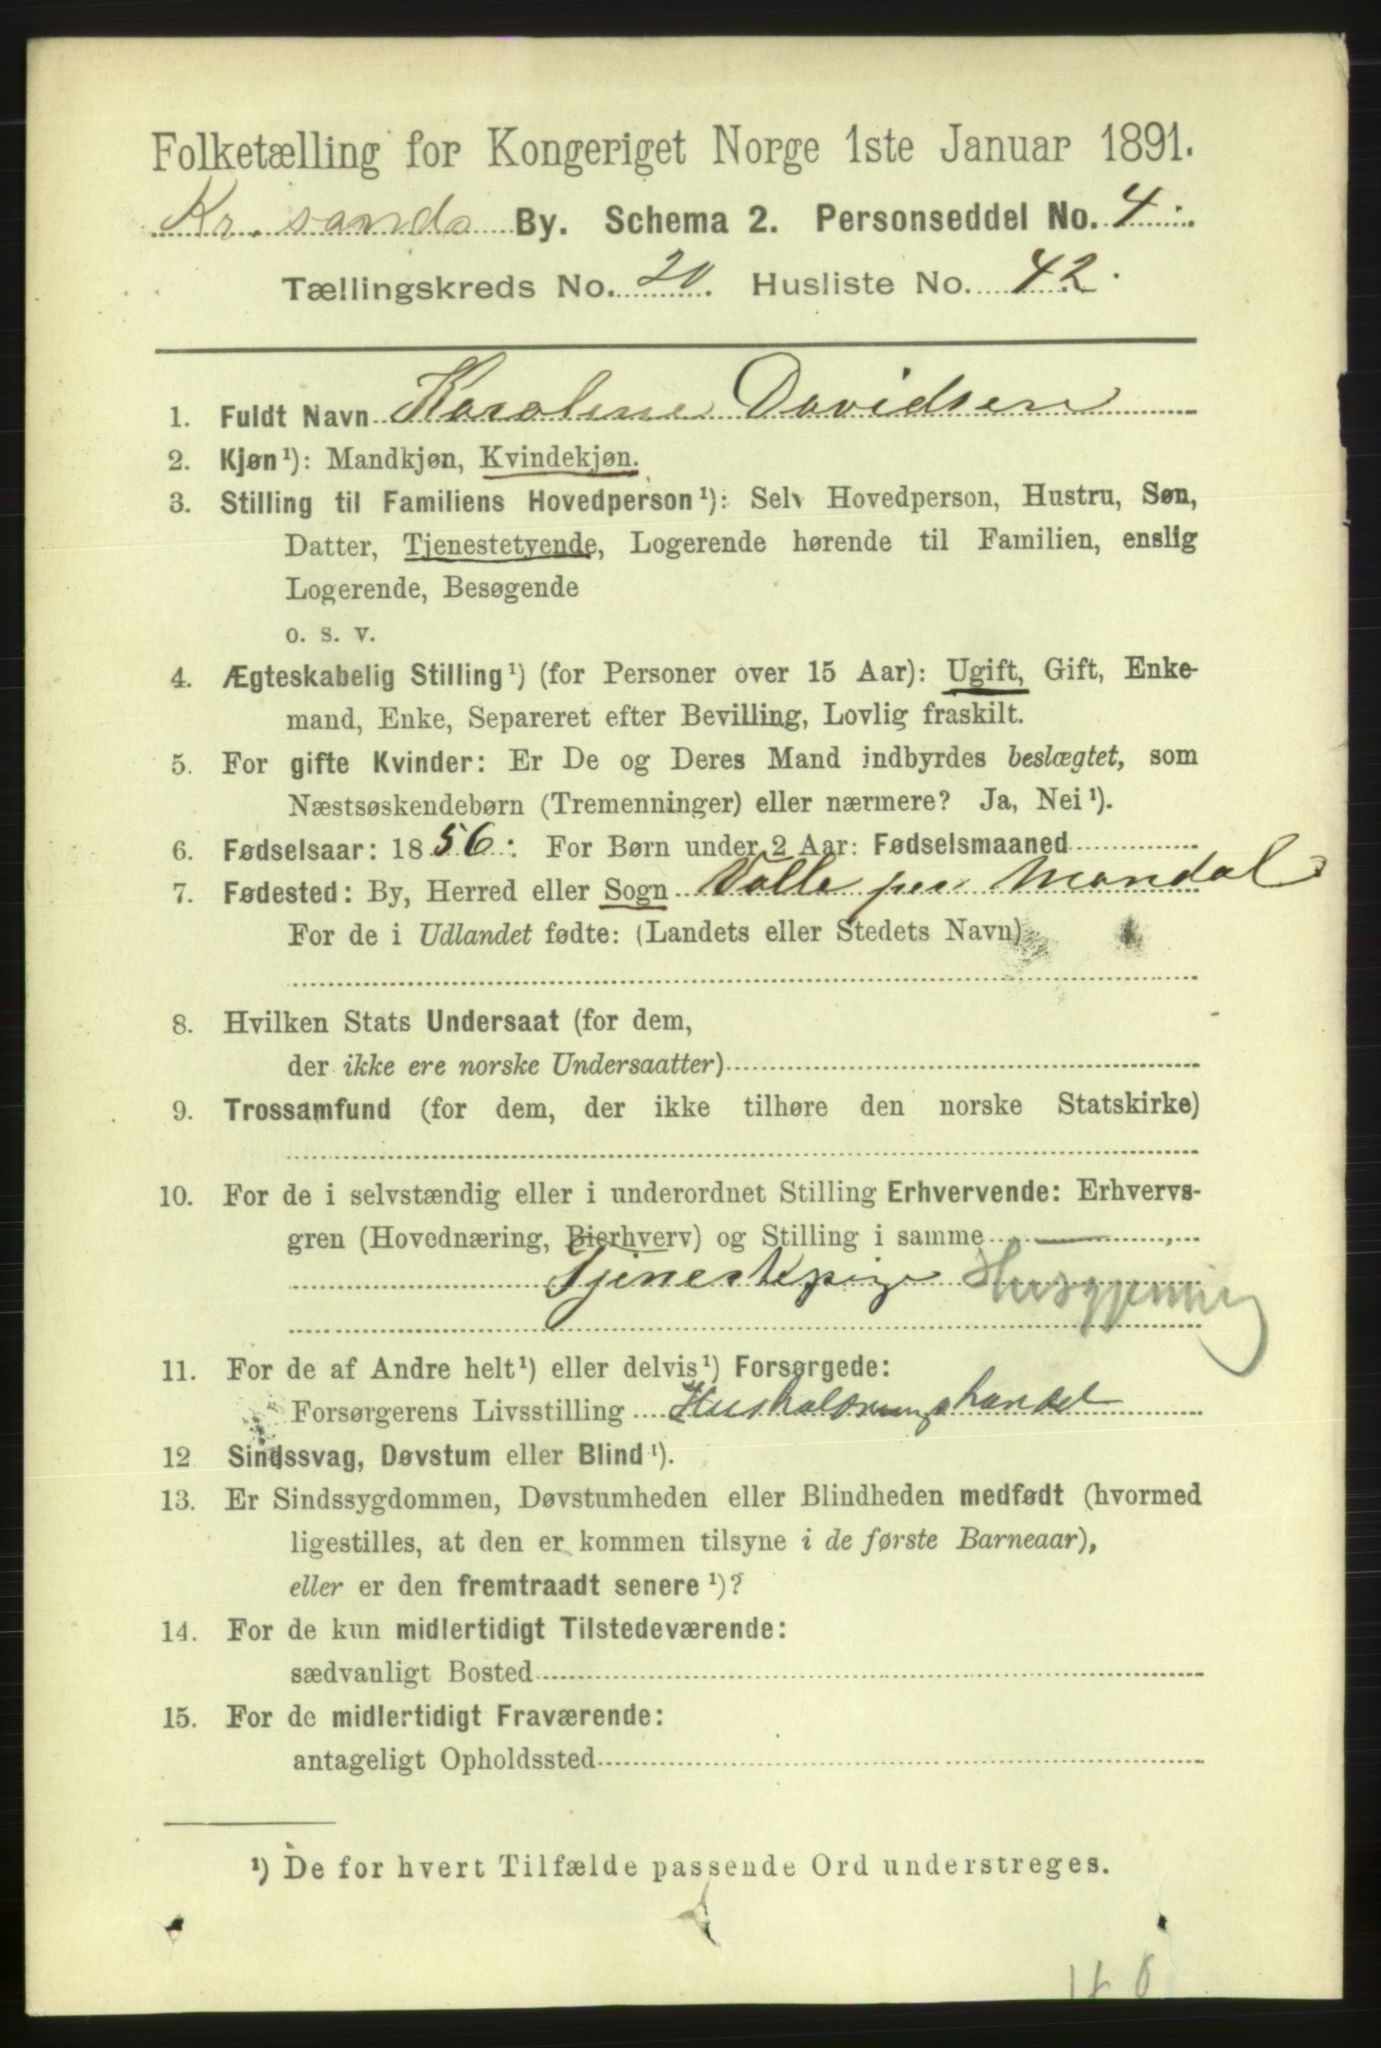 Folketælling for Kongeriget Norge 1ste Januar 1891.
Kr.sands By. Schema 2. Personseddel No. 4.
Tællingskreds No. 20. Husliste No. 42.
1. Fuldt Navn Karoline Davidsen
2. Kjøn¹): Mandkjøn, Kvindekjøn.
3. Stilling til Familiens Hovedperson¹): Selv Hovedperson, Hustru, Søn,
Datter, Tjenestetyende, Logerende hørende til Familien, enslig
Logerende, Besøgende
o. s. v.
4. Ægteskabelig Stilling¹) (for Personer over 15 Aar): Ugift, Gift, Enke-
mand, Enke, Separeret efter Bevilling, Lovlig fraskilt.
5. For gifte Kvinder: Er De og Deres Mand indbyrdes beslægtet, som
Næstsøskendebørn (Tremenninger) eller nærmere? Ja, Nei¹).
6. Fødselsaar: 1856. For Børn under 2 Aar: Fødselsmaaned
7. Fødested: By, Herred eller Sogn Valle per Mandal
For de i Udlandet fødte: (Landets eller Stedets Navn)
8. Hvilken Stats Undersaat (for dem,
der ikke ere norske Undersaatter)
9. Trossamfund (for dem, der ikke tilhøre den norske Statskirke)
10. For de i selvstændig eller i underordnet Stilling Erhvervende: Erhvervs-
gren (Hovednæring, Bierhverv) og Stilling i samme
Tjenestepige Husgjerning
11. For de af Andre helt¹) eller delvis¹) Forsørgede:
Forsørgerens Livsstilling Husholdningshandel
12 Sindssvag, Døvstum eller Blind¹).
13. Er Sindssygdommen, Døvstumheden eller Blindheden medfødt (hvormed
ligestilles, at den er kommen tilsyne i de første Barneaar),
eller er den fremtraadt senere¹)?
14. For de kun midlertidigt Tilstedeværende:
sædvanligt Bosted
15. For de midlertidigt Fraværende:
antageligt Opholdssted
¹) De for hvert Tilfælde passende Ord understreges.